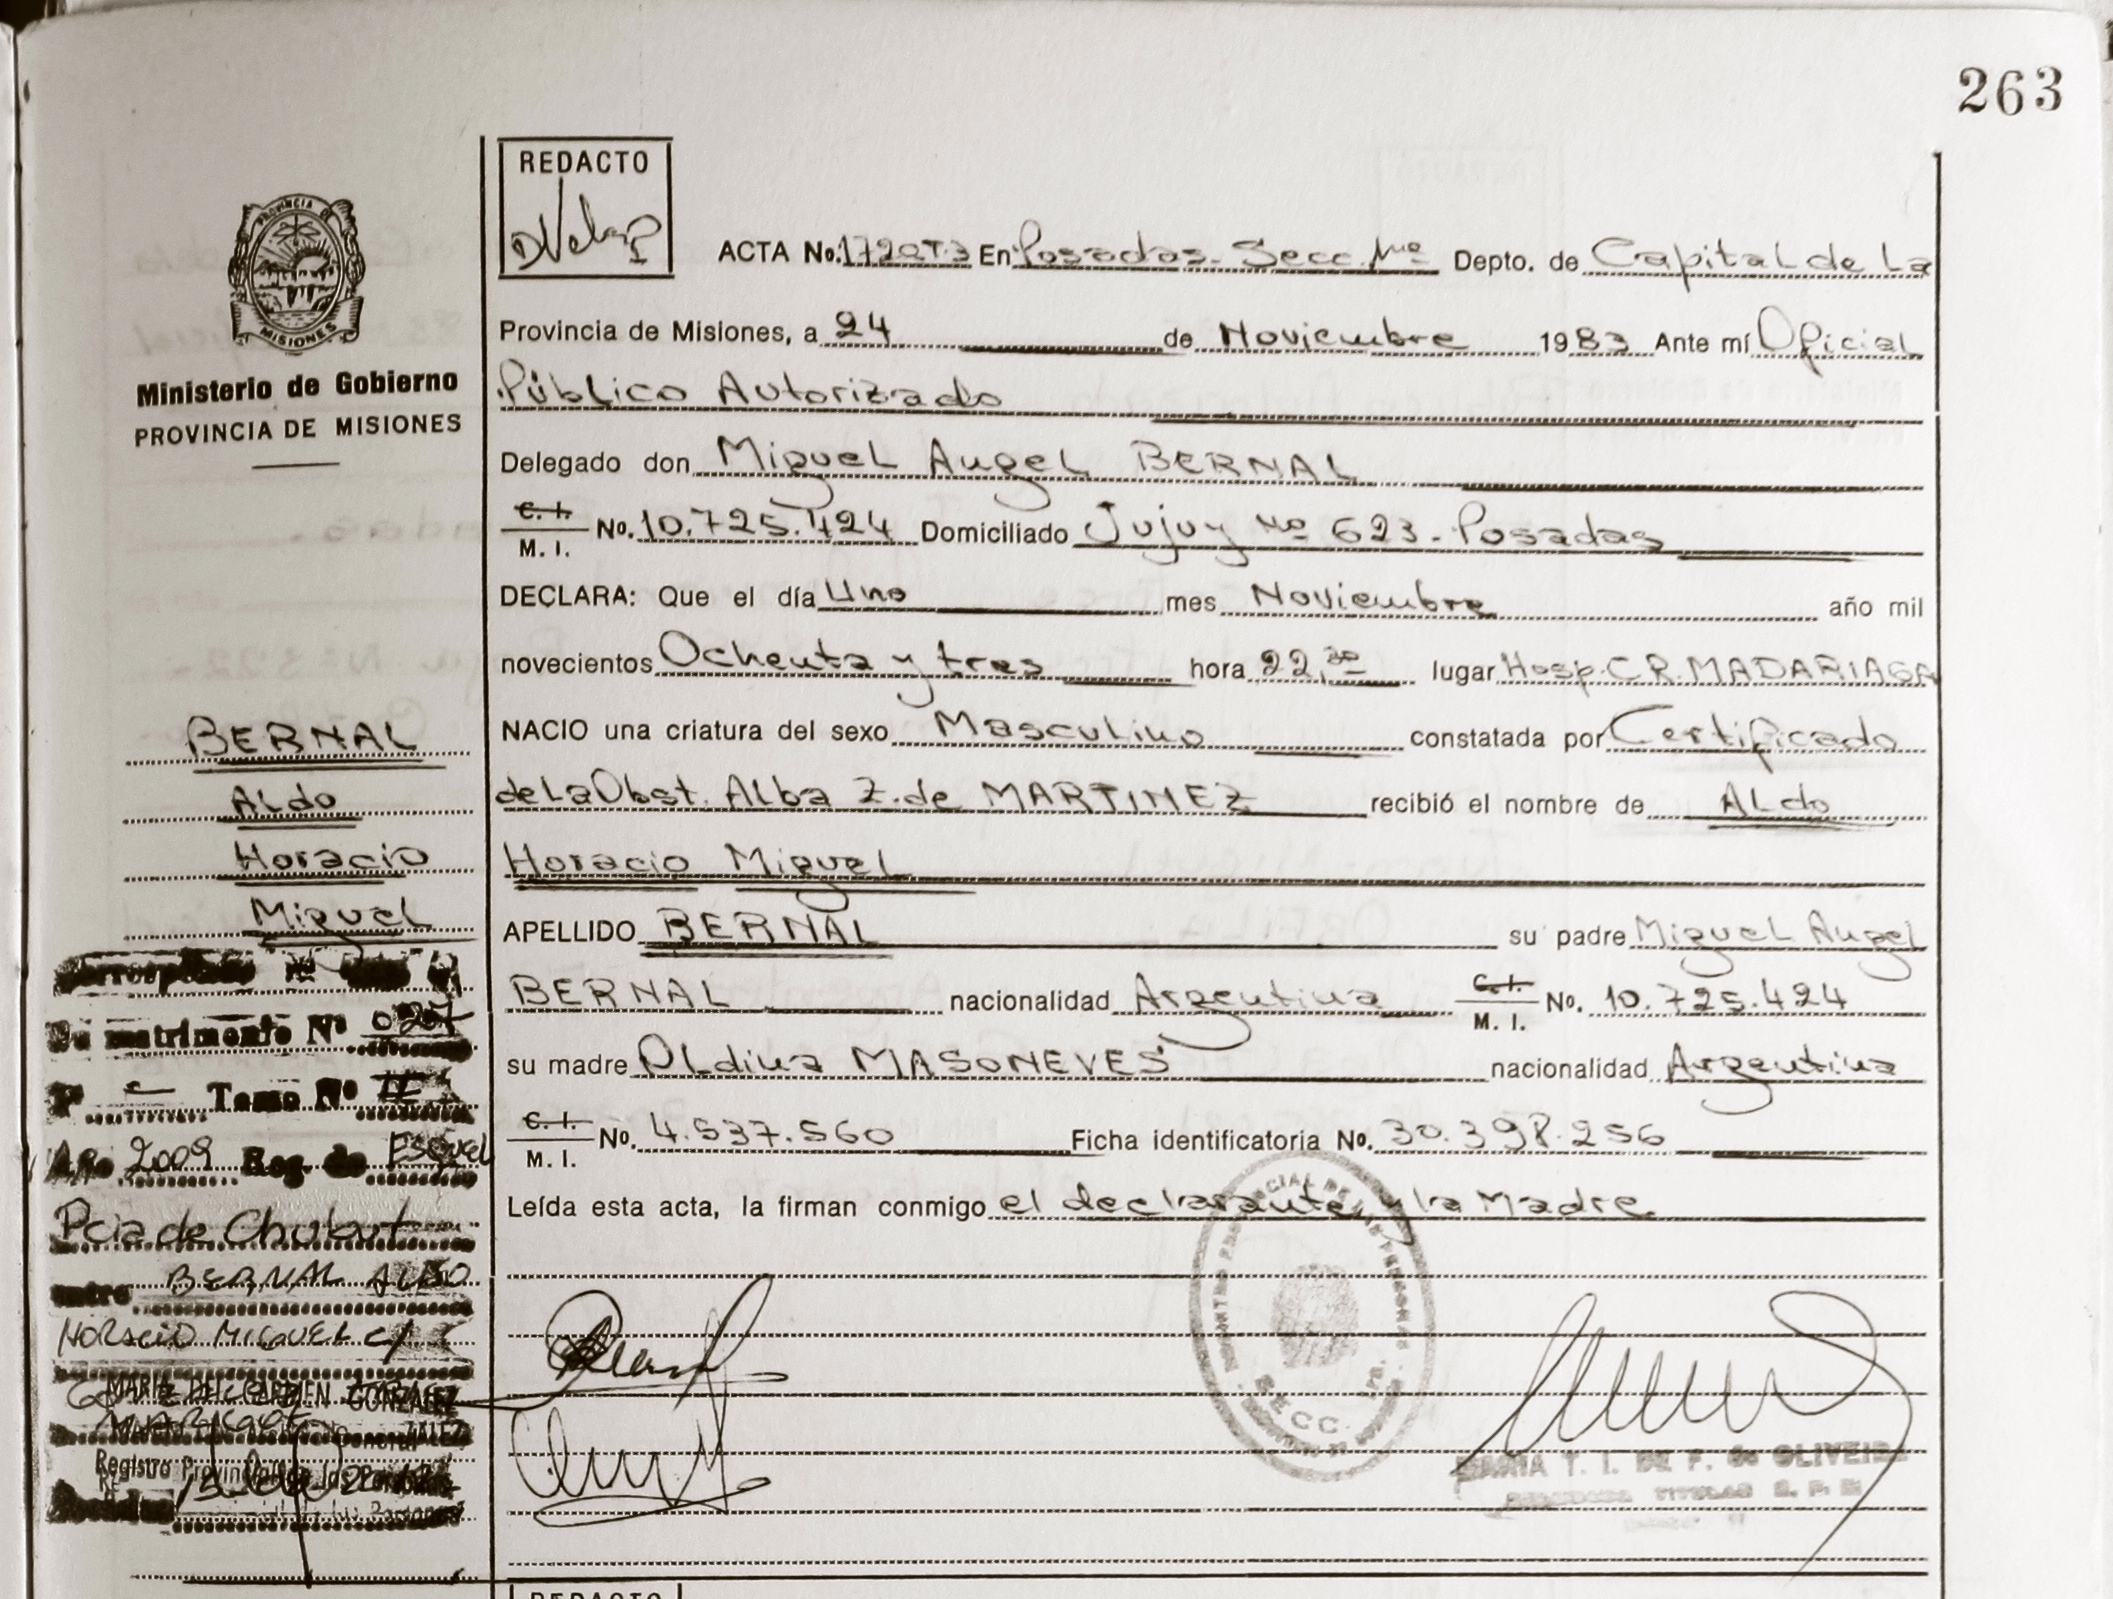 263
REDACTO
PROVINCIA DE
MISIONES
Ministerio de Gobierno
PROVINCIA DE MISIONES
ACTA No. En Posadas- Secc. Depto. de Capital de La
Provincia de Misiones, a 24 de Noviembre 1983 Ante mí Oficial
Público Autorizado
Delegado don Miguel Angel BERNAL
C. I. M. I. No. 10.725.424 Domiciliado Jujuy Nº 623- Posadas
DECLARA: Que el día Uno mes Noviembre año mil
novecientos Ochenta y tres hora 22,30 lugar Hosp. C.R. MADARIAGA
NACIO una criatura del sexo Masculino constatada por Certificado
de La Obst. Alba Z. de MARTINEZ recibió el nombre de ALdo
Horacio Miguel
APELLIDO BERNAL su padre Miguel Angel
BERNAL nacionalidad Argentina C. I. M. I. No. 10.725.424
su madre MASONEVES nacionalidad Argentina
C. I. M. I. No. 4.537.560 Ficha identificatoria No. 30.398.256
Leída esta acta, la firman conmigo el declarante y la Madre
BERNAL
ALdo
Horacio
Miguel
Su matrimonio Nº 0207
Fº Tomo Nº II
Año 2009 Reg. de Esquel
Pcia de Chubut
entre BERNAL ALDO
HORACIO MIGUEL c/
MARIA DEL CARMEN GONZALEZ
Registro Provincial de las Personas
Posadas
SECC.
MARIA T. I. DE F. de OLIVEIRA
REDACTO